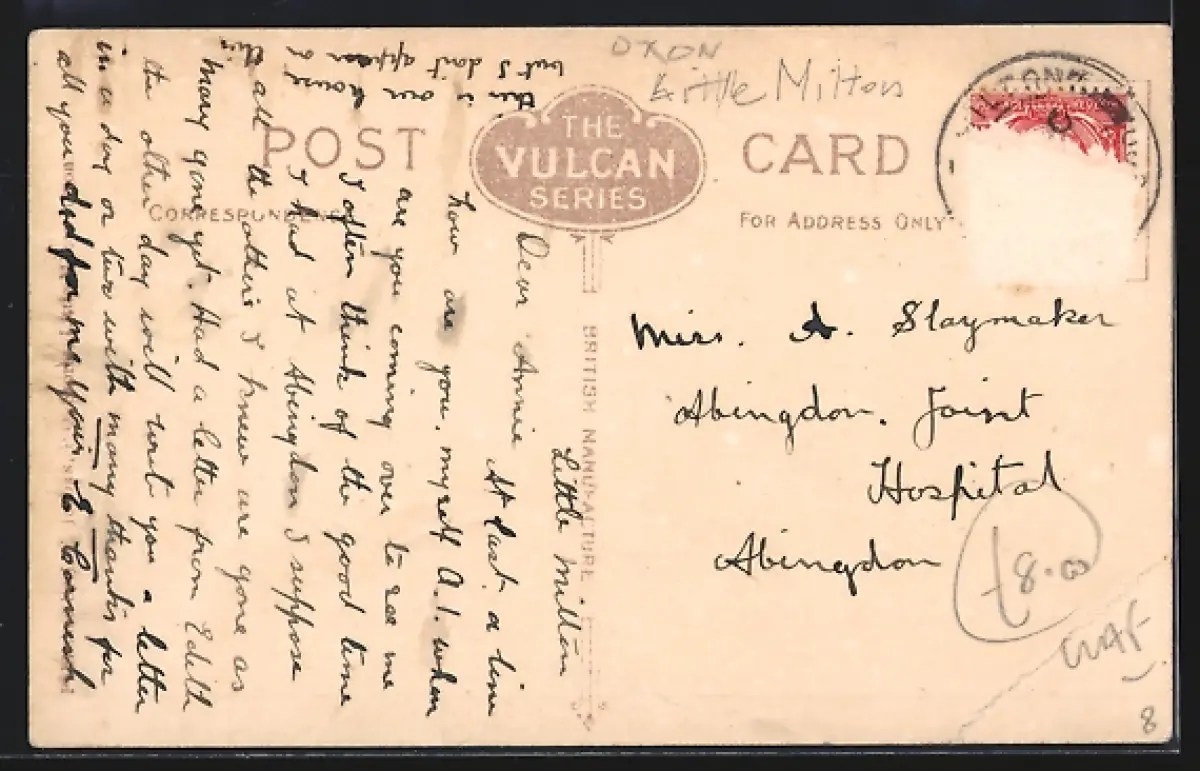 OXON
Little Milton
POST CARD
THE
VULCAN
SERIES
CORRESPONDENCE
FOR ADDRESS ONLY
BRITISH MANUFACTURE
this is our house
but I don't appear
Little Milton
Dear Annie At last a line
how are you, myself A.1. when
are you coming over to see me
I often think of the good time
I had at Abingdon I suppose
all the others I knew are gone as
Mary gone yet. Had a letter from Edith
the other day will write you a letter
in a day or two with many thanks for
all you did for me Yours E
Miss. A. Slaymaker
Abingdon. Joint
Hospital
Abingdon
£8.00
8